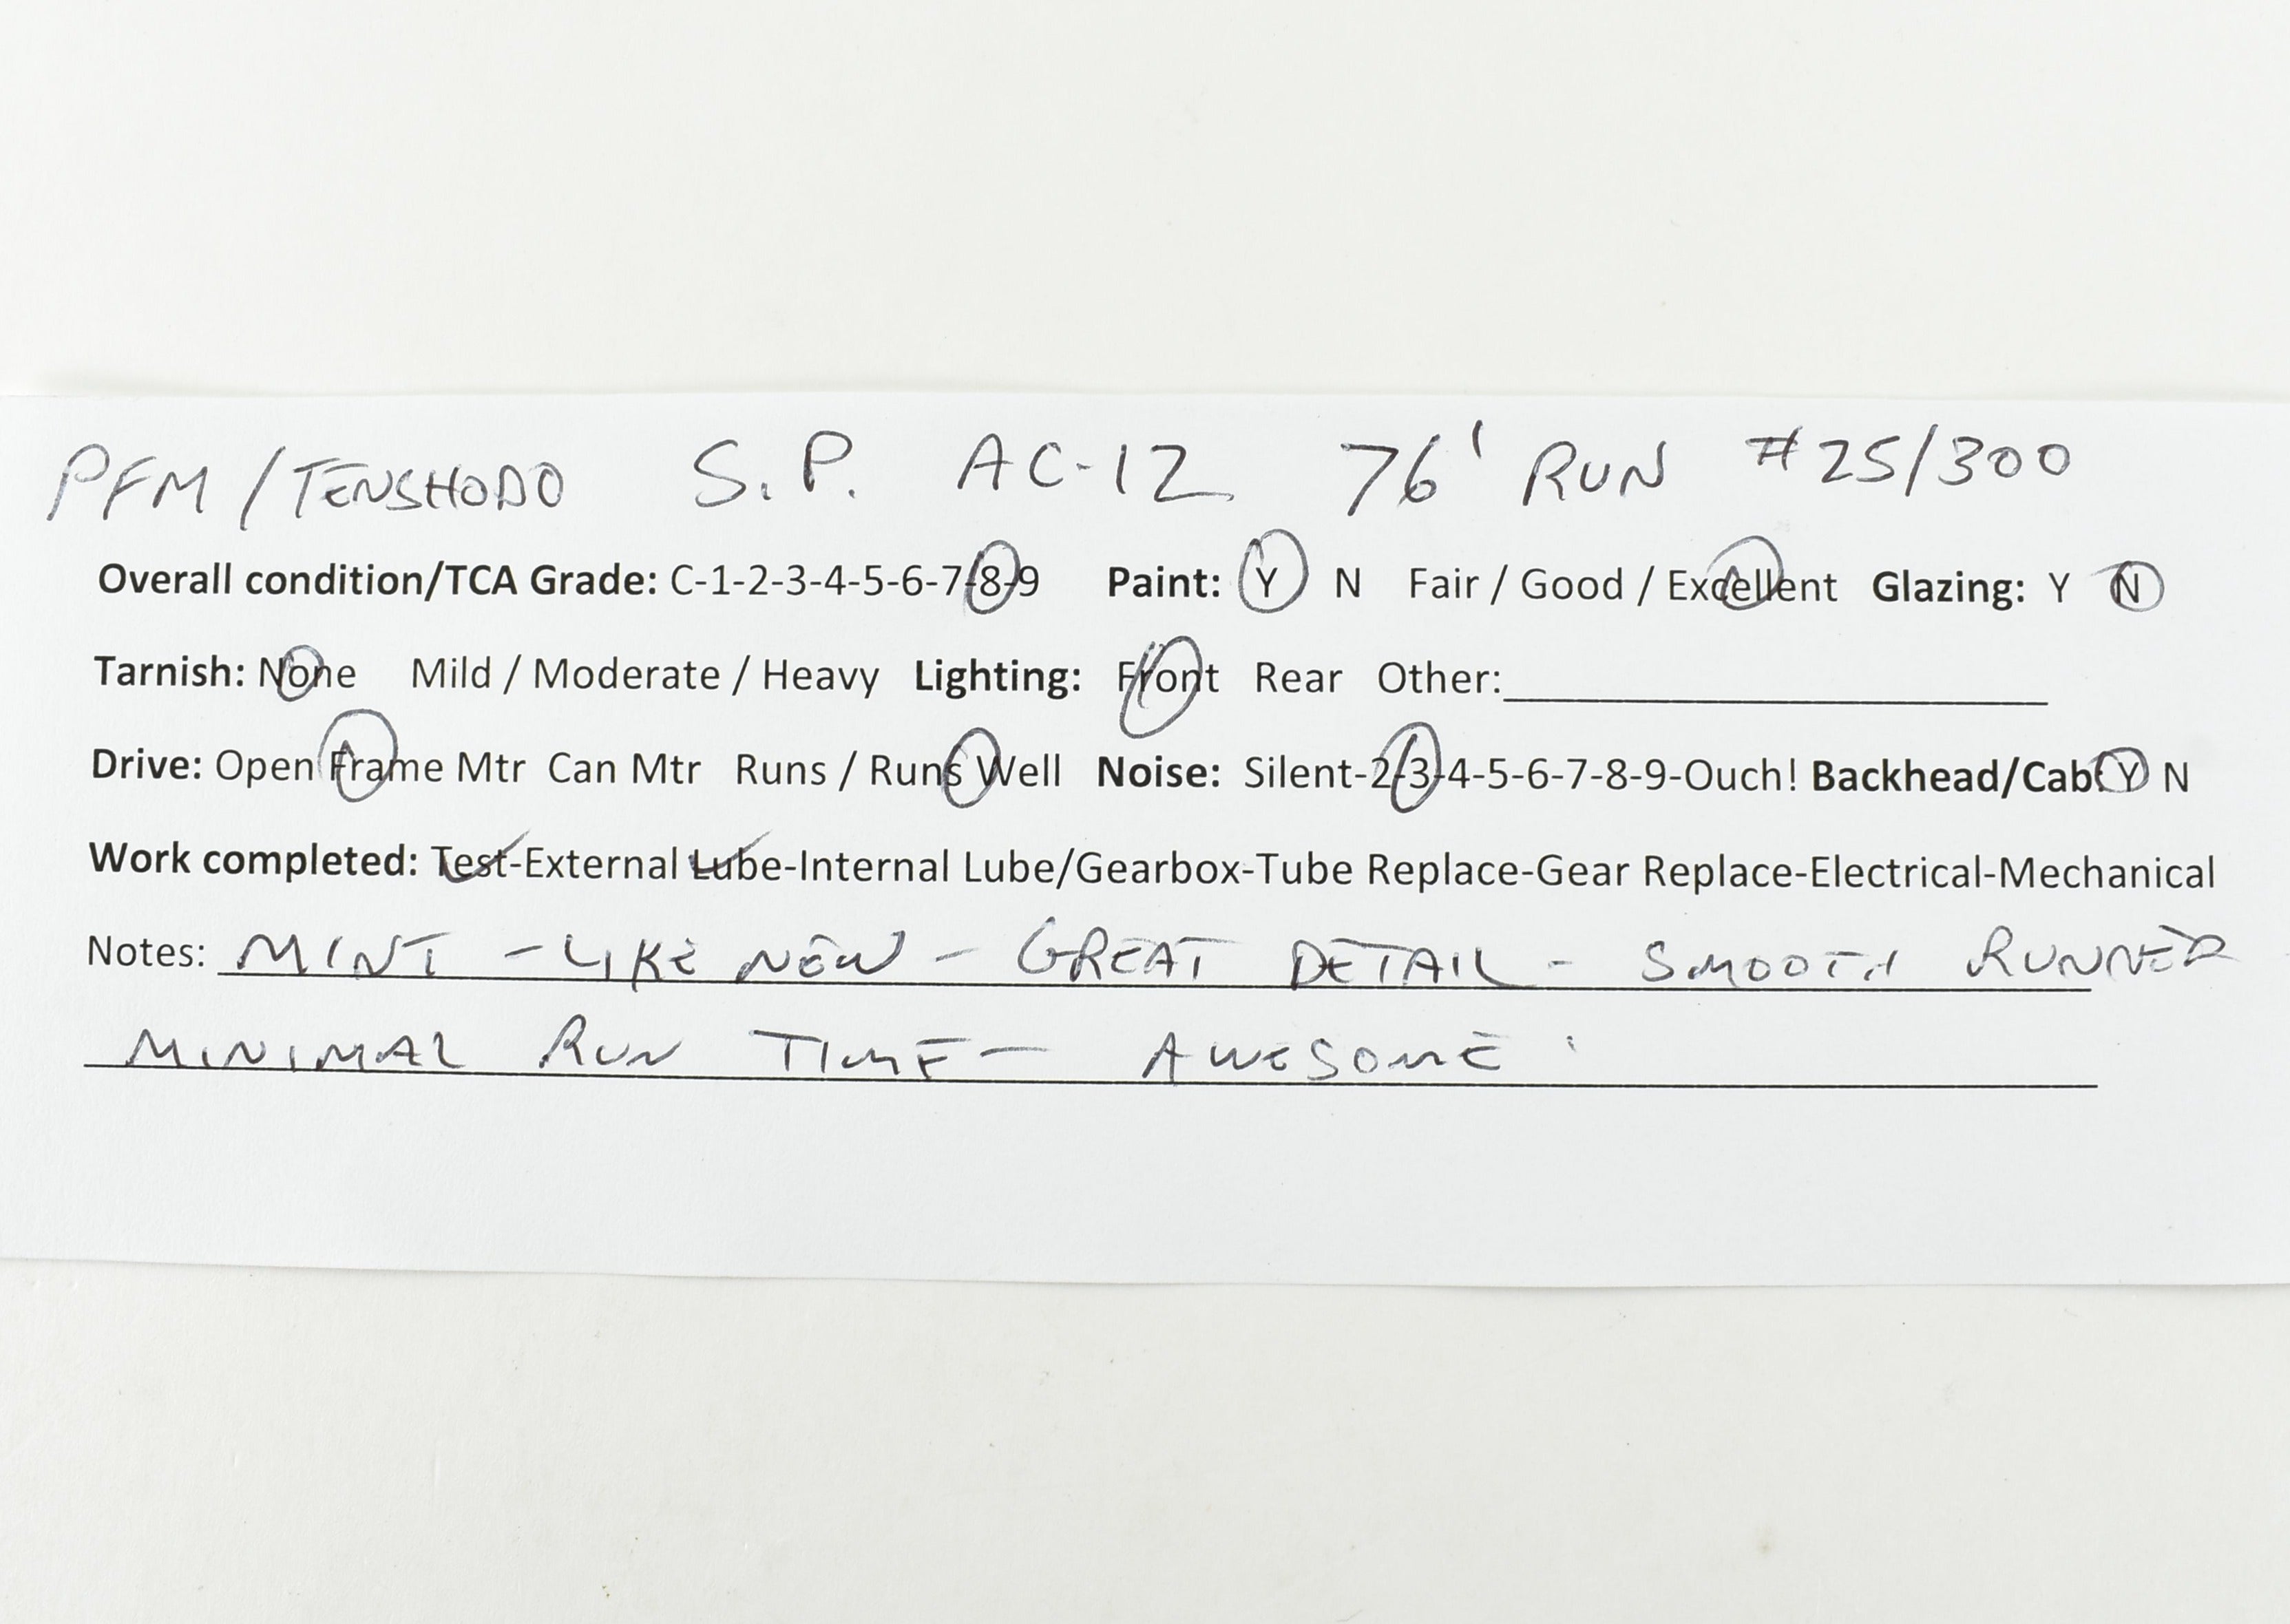 PFM/TENSHODO S.P. AC-12 76' RUN #25/300
Overall condition/TCA Grade: C-1-2-3-4-5-6-7-8-9 Paint: Y N Fair / Good / Excellent Glazing: Y N
Tarnish: None Mild / Moderate / Heavy Lighting: Front Rear Other:
Drive: Open Frame Mtr Can Mtr Runs / Runs Well Noise: Silent-2-3-4-5-6-7-8-9-Ouch! Backhead/Cab: Y N
Work completed: Test-External Lube-Internal Lube/Gearbox-Tube Replace-Gear Replace-Electrical-Mechanical
Notes: MINT - LIKE NEW - GREAT DETAIL - SMOOTH RUNNER
MINIMAL RUN TIME - AWESOME